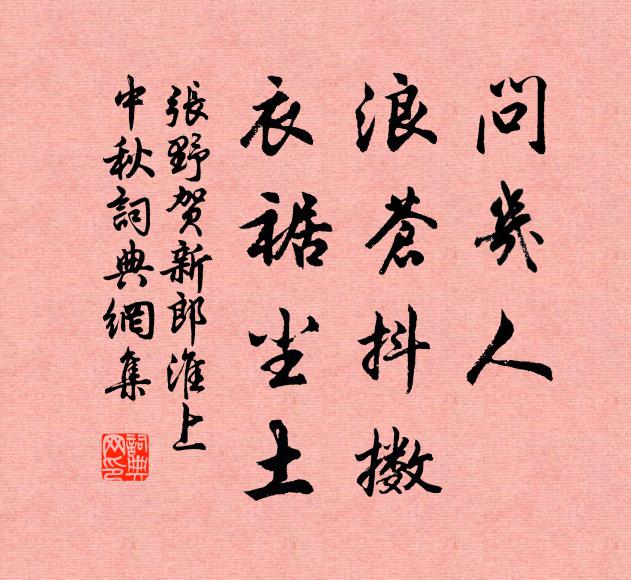 問幾人
浪蒼抖擻
衣裾尘土
張野賀新郎淮上
中秋詞典網集
詞典网印